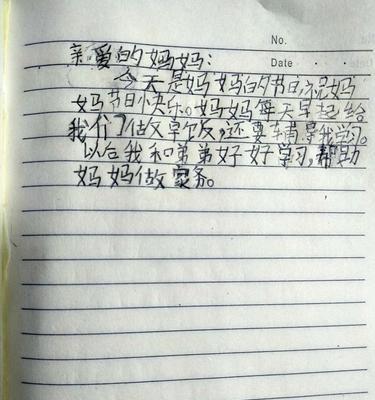 No.
Date
亲爱的妈妈:
今天是妈妈的节日,祝妈
妈节日快乐。妈妈每天早起给
我们做早饭,还要辅导我学习。
以后我和弟弟好好学习,帮助
妈妈做家务。